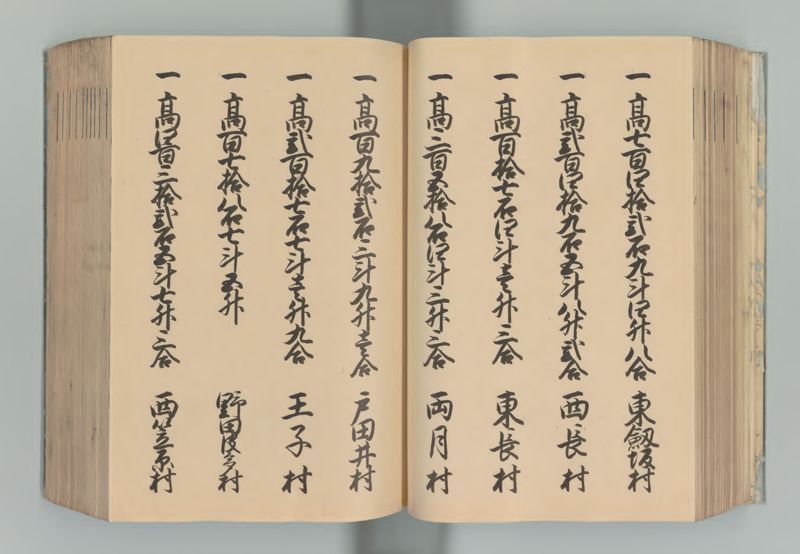 一 高七百四拾弐石九斗四升八合 東劔坂村
一 高弐百四拾九石五斗八升弐合 西長村
一 高百拾七石四斗壱升三合 東長村
一 高三百五拾八石四斗三升三合 両月村
一 高百九拾弐石三斗九升壱合 戸田井村
一 高弐百拾七石七斗壱升九合 王子村
一 高百七拾八石七斗五升 野田村
一 高四百三拾弐石五斗七升三合 西笠原村